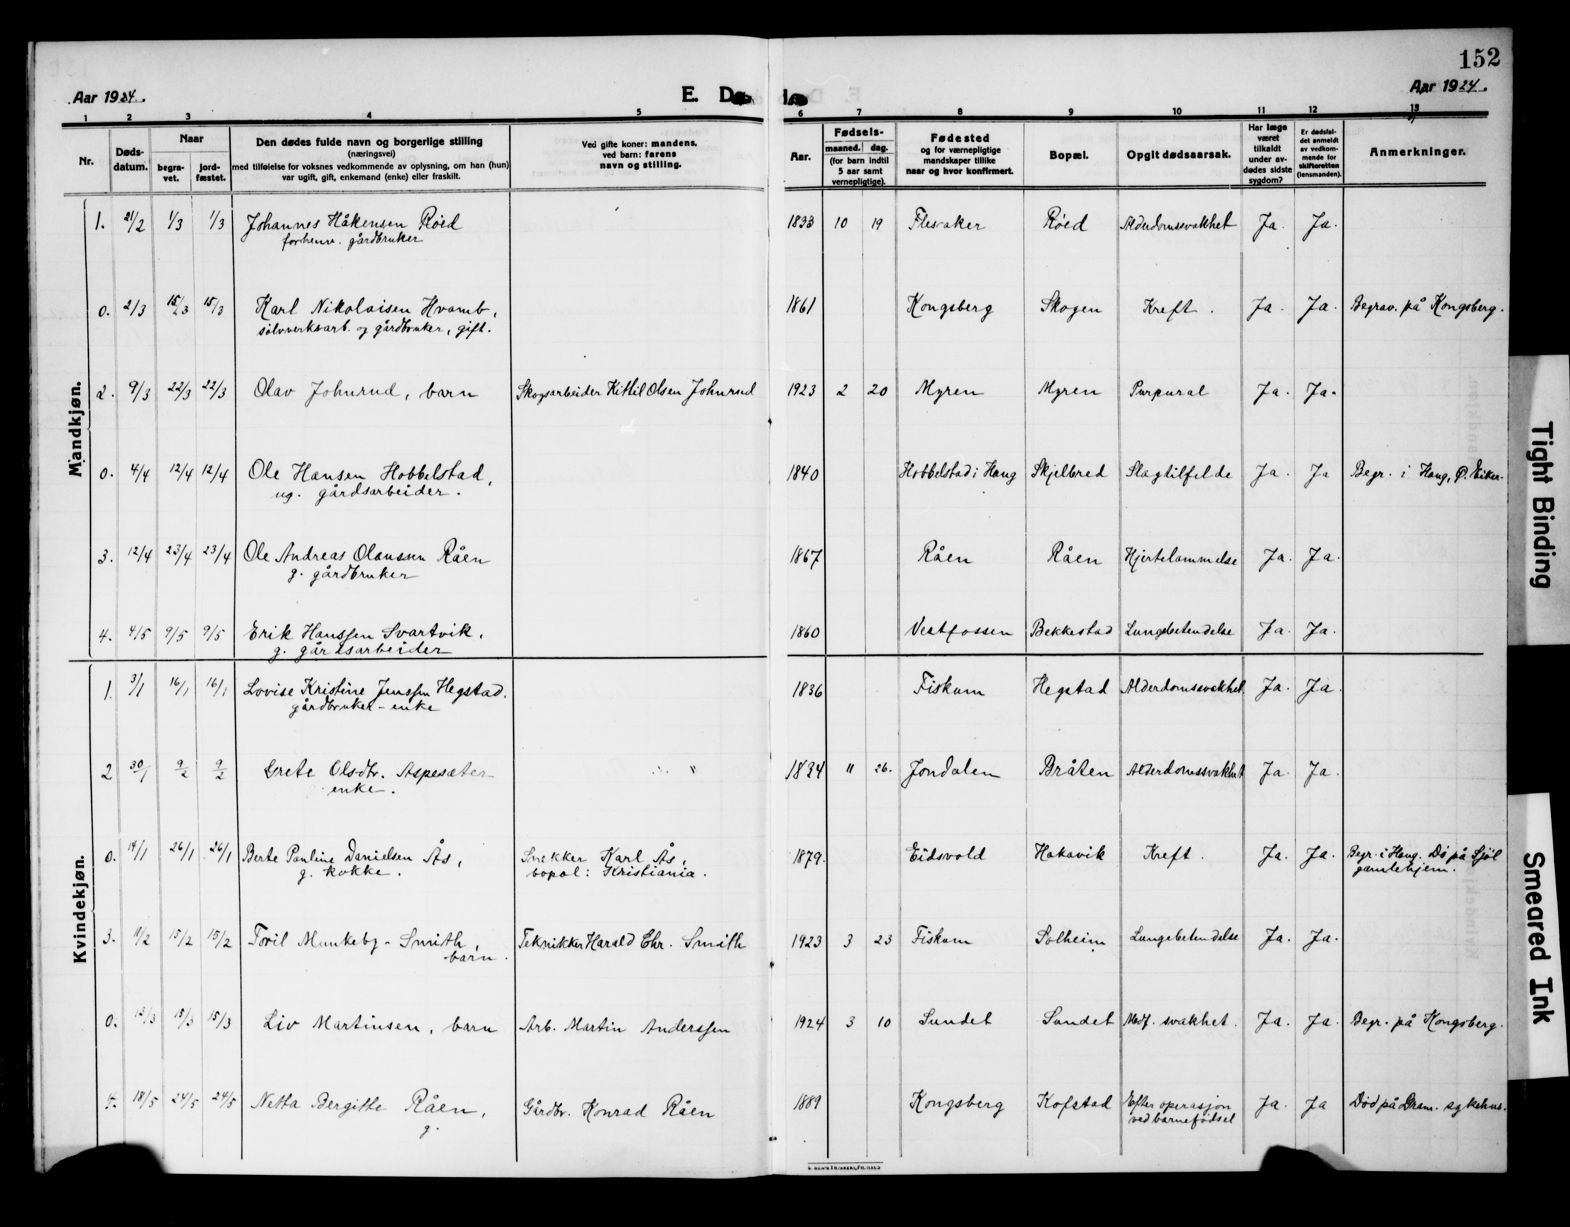 152
Aar 1924.
E. Dø
Aar 1924.
1 2 3 4 5 6 7 8 9 10 11 12 13
Nr.
Døds-
datum.
Naar
begra-
vet.
jord-
fæstet.
Den dødes fulde navn og borgerlige stilling
(næringsvei)
med tilføielse for voksnes vedkommende av oplysning, om han (hun)
var ugift, gift, enkemand (enke) eller fraskilt.
Ved gifte koner: mandens,
ved barn: farens
navn og stilling.
Aar.
Fødsels-
maaned. dag.
(for barn indtil
5 aar samt
vernepligtige).
Fødested
og for værnepligtige
mandskaper tillike
naar og hvor konfirmert.
Bopæl.
Opgit dødsaarsak.
Har læge
været
tilkaldt
under av-
dødes sidste
sygdom?
Er dødsfal-
det anmeldt
av vedkom-
mende for
skifteretten
(lensmanden).
Anmerkninger.
Mandkjøn.
1. 21/2 1/3 1/3 Johannes Håkensen Røid 1833 10 19 Flesaker Røid Alderdomssvakhet Ja. Ja.
forhenv. gårdbruker
0. 2/3 15/3 15/3 Karl Nikolaisen Hvamb, 1861 Kongsberg Skogen Kreft. Ja. Ja. Begrav. på Kongsberg.
sølvverksarb. og gårdbruker, gift.
2. 9/3 22/3 22/3 Olav Johnrud, barn Skogsarbeider Kittil Olsen Johnrud 1923 2 20 Myren Myren Purpural Ja. Ja.
0. 4/4 12/4 12/4 Ole Hansen Hobbelstad, 1840 Hobbelstad i Haug Skjelbred Slagtilfelde Ja. Ja Begr. i Haug, Ø. Eiker.
ug. gårdsarbeider.
3. 12/4 23/4 23/4 Ole Andreas Olaussen Råen 1867 Råen Råen Hjertelammelse Ja. Ja.
g. gårdbruker
4. 4/5 9/5 9/5 Erik Hanssen Svartvik, 1860 Vestfossen Bekkestad Lungebetendelse Ja. Ja.
g. gårdsarbeider
Kvindekjøn.
1. 3/1 16/1 16/1 Lovise Kristine Jenssen Hegstad. 1836 Fiskum Hegstad Alderdomssvakhet Ja. Ja.
gårdbruker-enke
2 30/1 9/2 9/2 Grete Olsdtr. Aspesæter 1834 11 26. Jondalen Bråten Alderdomssvakhet Ja. Ja.
enke.
0. 19/1 26/1 26/1 Berte Pauline Danielsen Ås, Snekker Karl Ås, 1879. Eidsvold Hakavik Kreft. Ja. Ja. Begr. i Haug. Dø på
g. kokke. bopæl: Kristiania. gamlehjem.
3. 9/2 15/2 15/2 Toril Munkeby-Smith, Tekniker Harald Chr. Smith 1923 3 23 Fiskum Solheim Lungebetendelse Ja. Ja.
barn.
0. 13/3 15/3 15/3 Liv Martinsen, barn Arb. Martin Anderssen 1924 3 10 Sundet Sundet Medf. svakhet. Ja. Ja. Begr. på Kongsberg.
4. 18/5 24/5 24/5 Netta Bergitte Råen, Gårdbr. Konrad Råen 1889 Kongsberg Kofstad Efter operasjon Ja. Ja Død på Dram. sykehus.
g. ved barnefødsel
Tight Binding
Smeared Ink